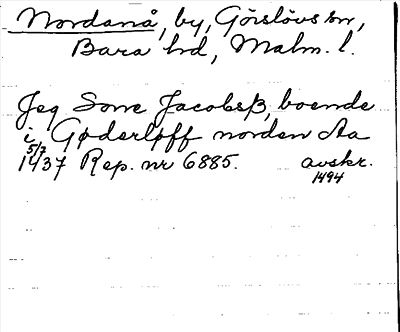 Nordanå, by, Görslövs sn,
Bara hd, Malm. l.
Jeg Sone Jacobsß, boende
i Gøderløff norden Aa
5/7
1437 Rep. nr 6885. avskr.
1494